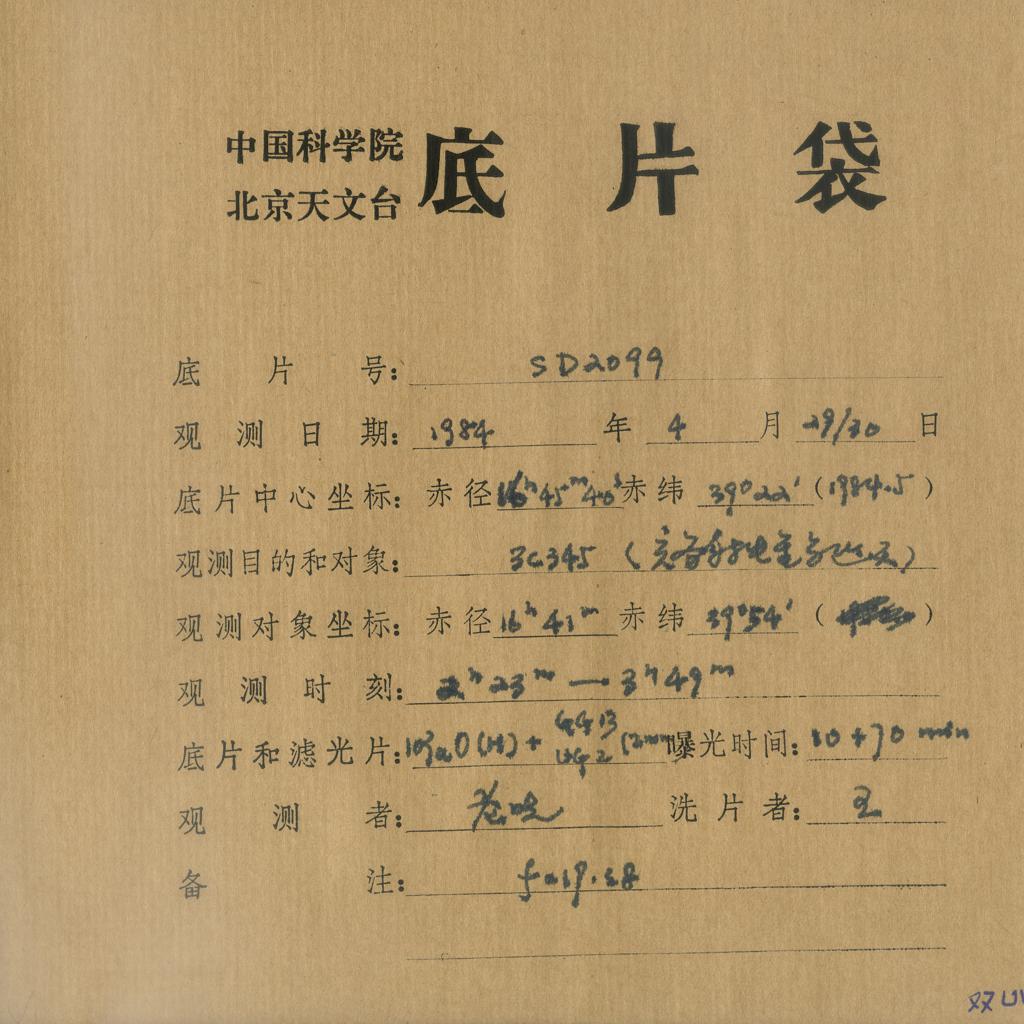 中国科学院
北京天文台
底片袋
底片号: SD2099
观测日期: 1984 年 4 月 29/30 日
底片中心坐标: 赤径 16h45m40s 赤纬 39°22′ (1984.5)
观测目的和对象: 3C345
观测对象坐标: 赤径 16h41m 赤纬 39°54′ ( )
观测时刻: 2h23m — 3h49m
底片和滤光片: 103aO(H) + GG13 UG2 (2mm 曝光时间: 10+70 min
观测者: 洗片者: 王
备注:
双UV